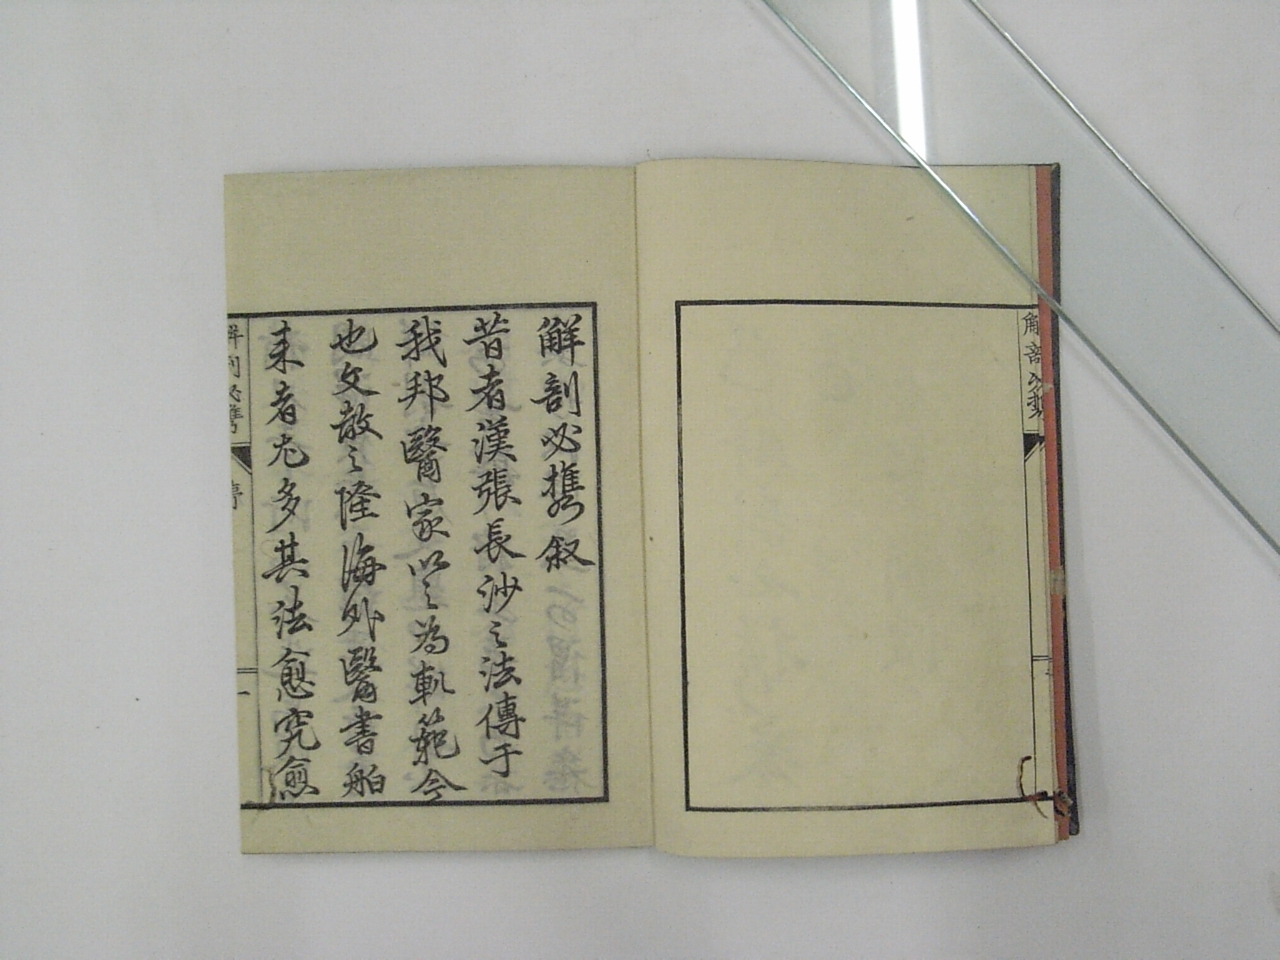 解剖必携
解剖必携叙
昔者漢張長沙之法傳于
我邦醫家以之為軌範今
也文教之隆海外醫書舶
来者尤多其法愈究愈
解剖必携
序
一